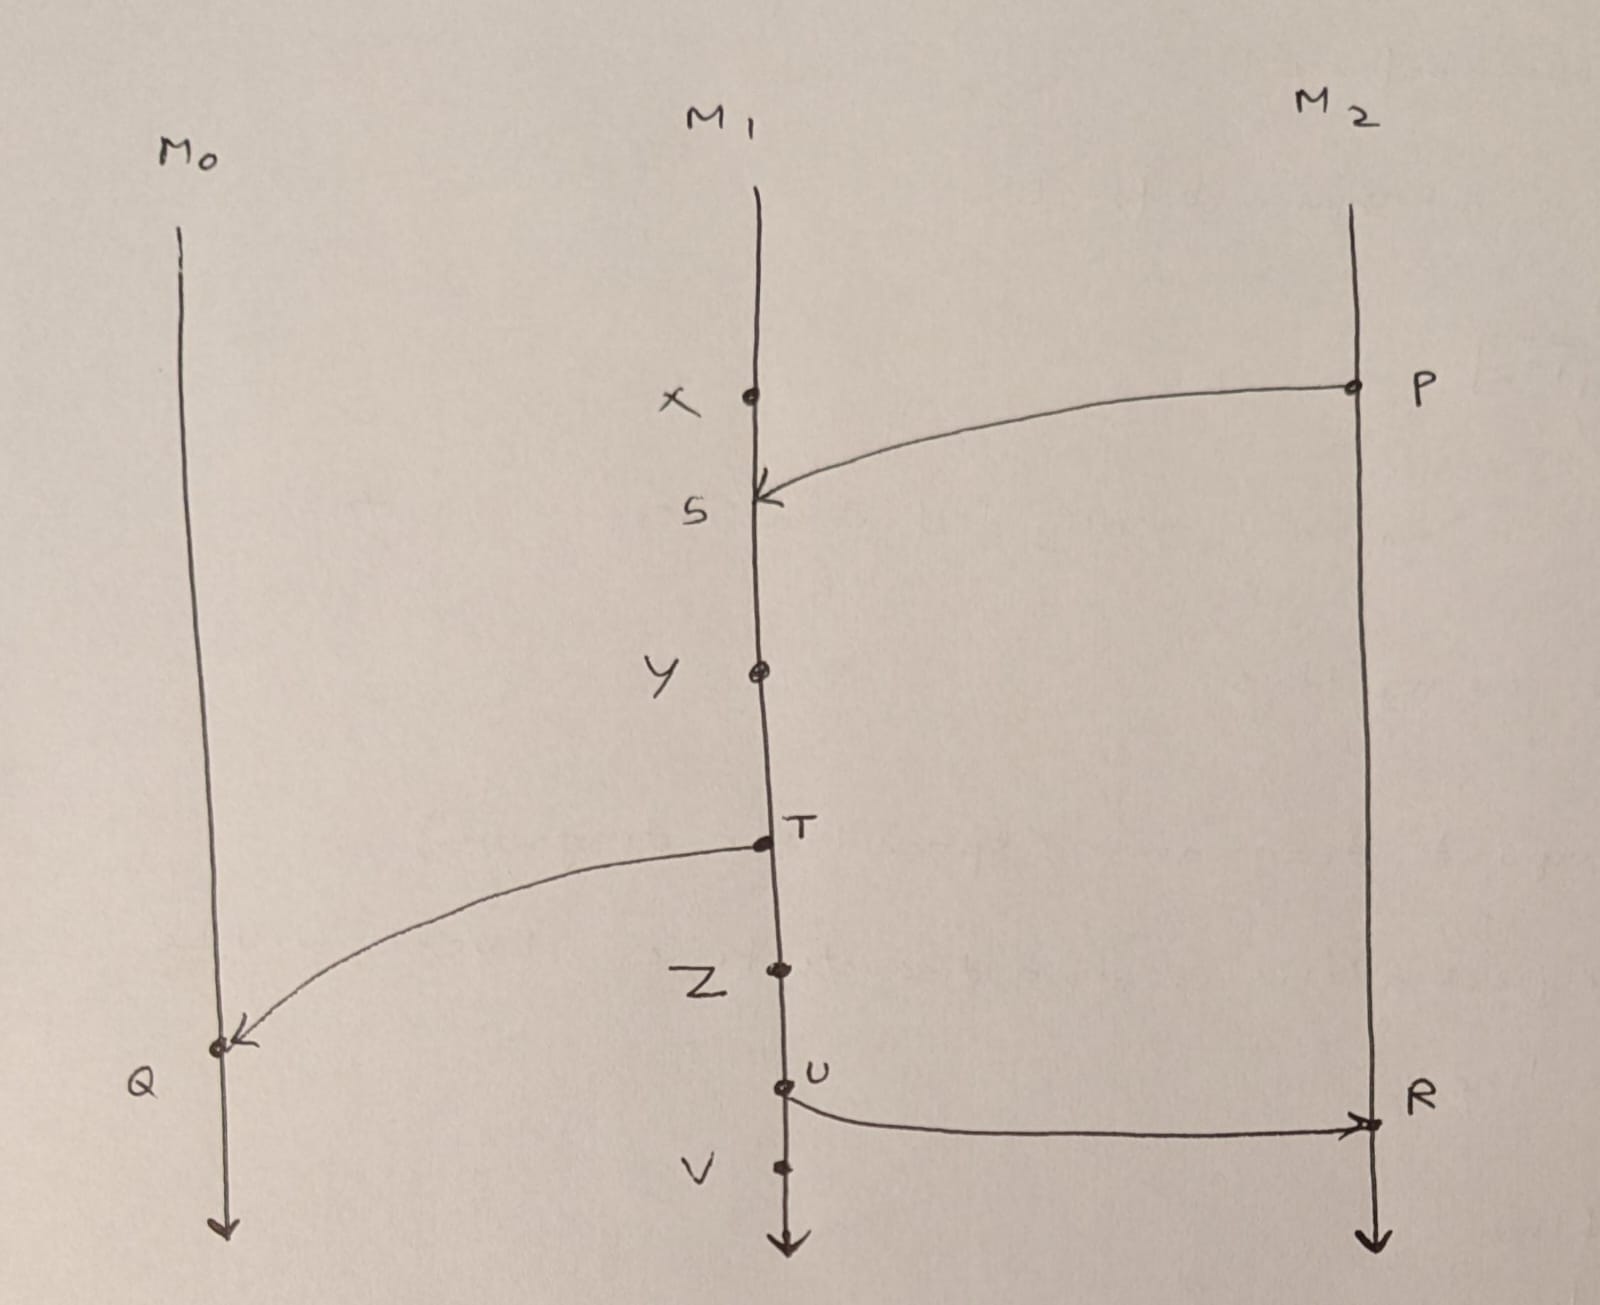 M0
M1
M2
X
P
S
Y
T
Z
Q
U
R
V